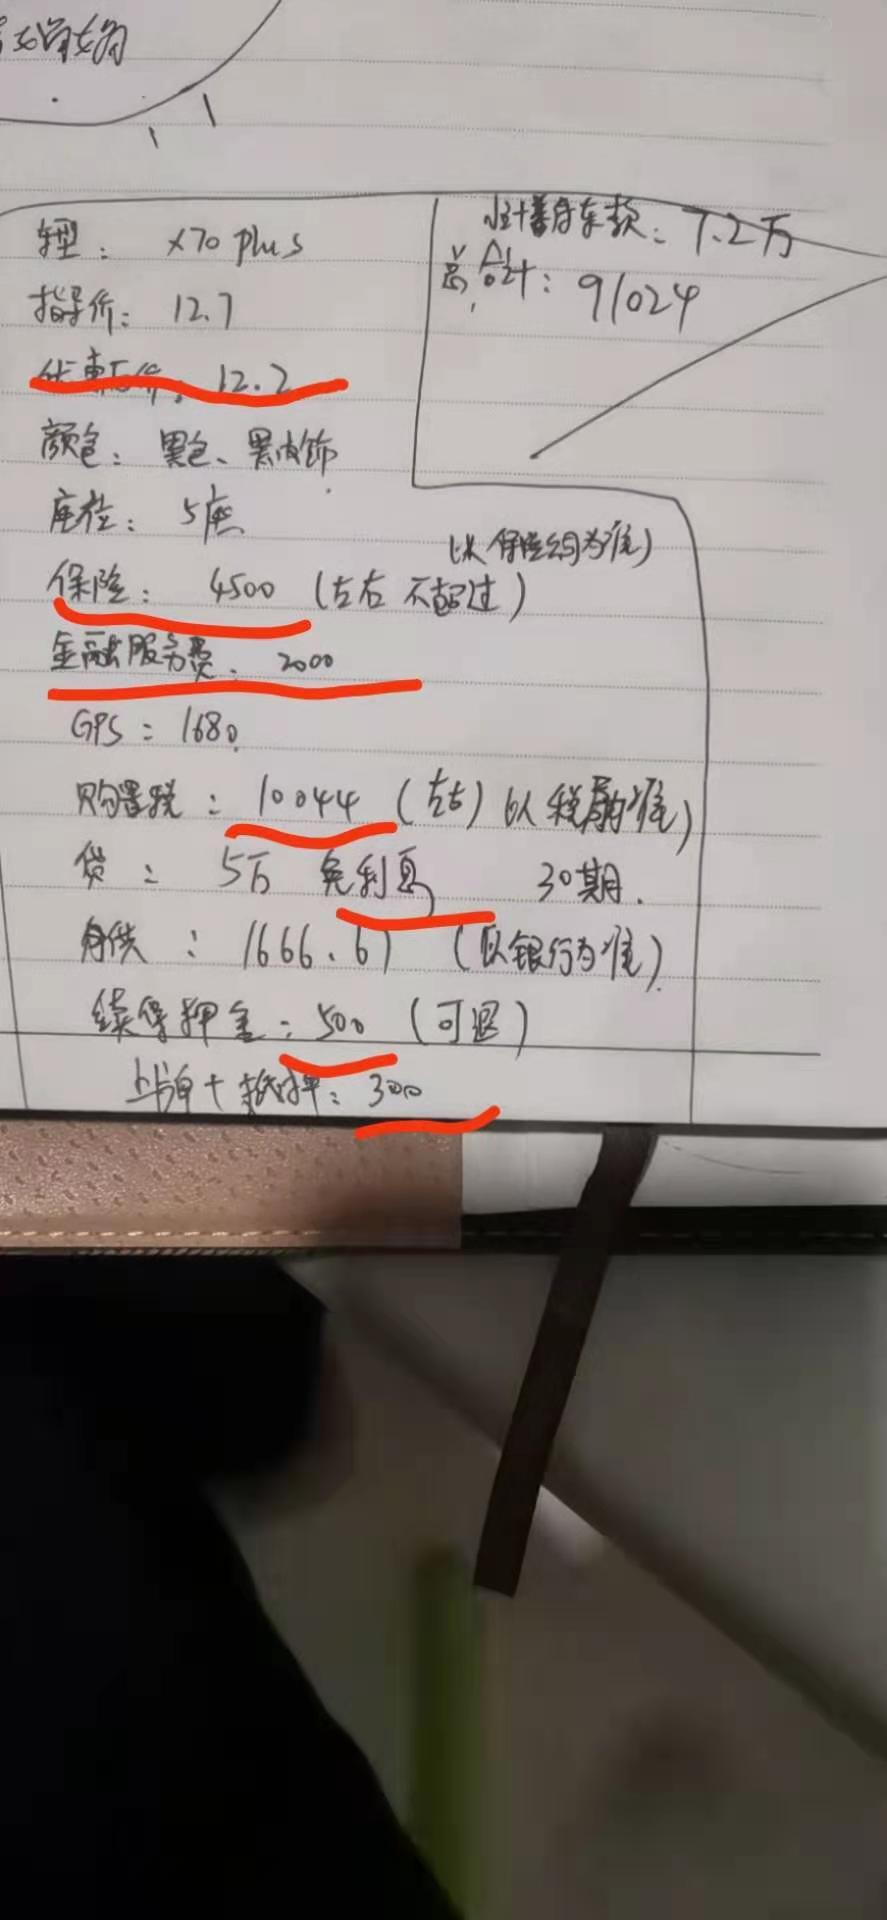 车型： x70 plus
指导价： 12.7
优惠后价： 12.2
颜色： 黑色、黑内饰
座位： 5座
保险： 4500 (左右 不超过)
(以保险公司为准)
金融服务费： 2000
GPS： 1680
购置税： 10044 (左右) 以税务为准)
贷： 5万 免利息 30期.
月供： 1666.67 (以银行为准)
续保押金： 500 (可退)
上牌+抵押： 300
车款： 7.2万
总合计： 91024